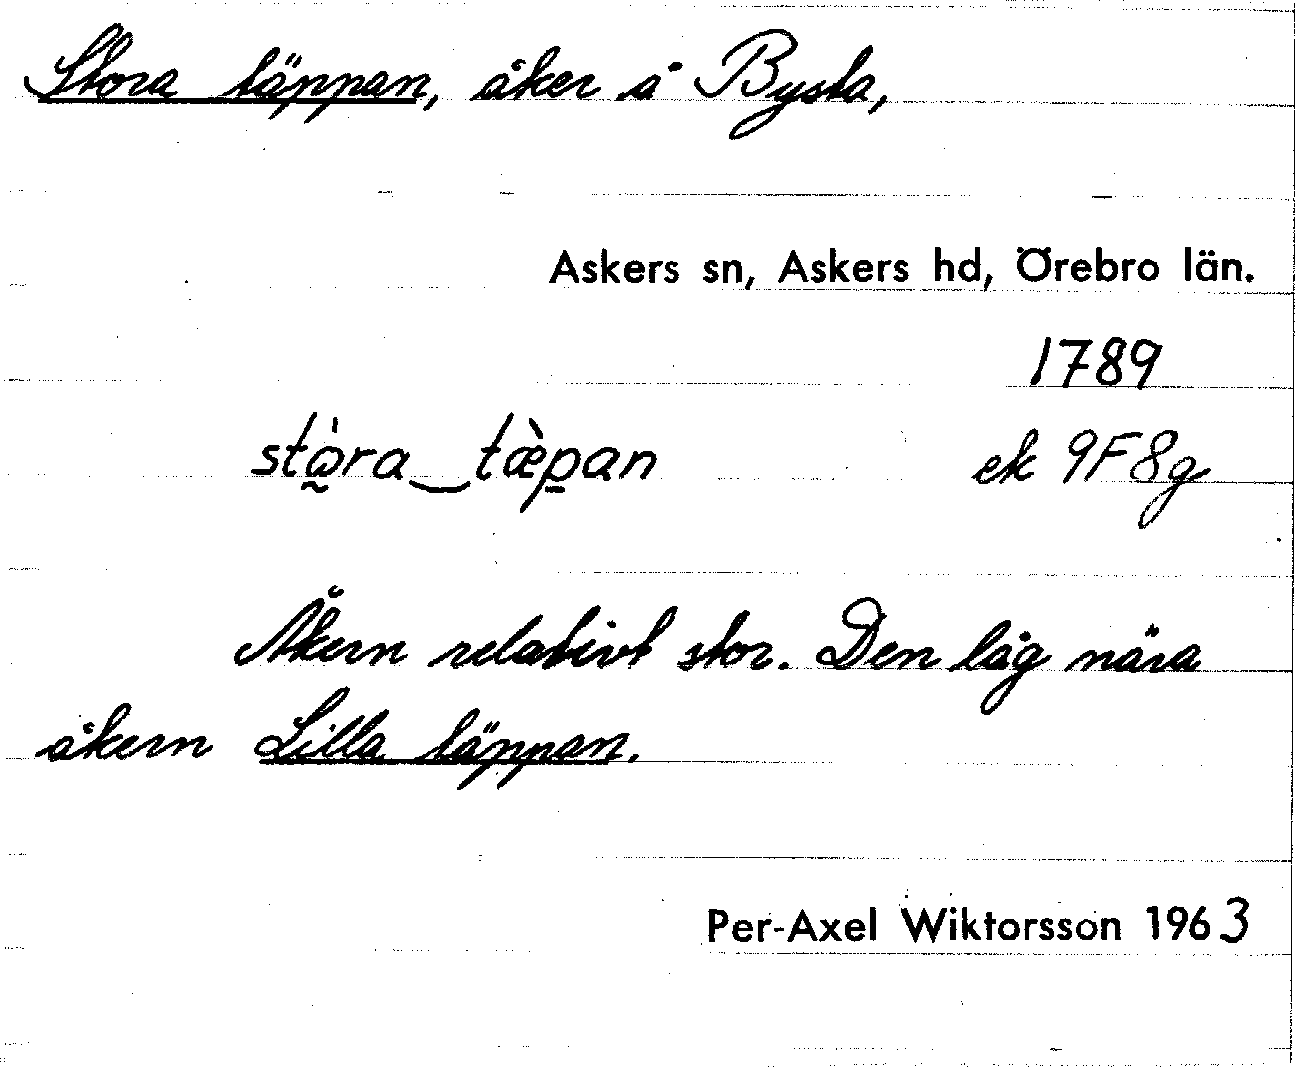 Stora täppan, åker å Bysta,
Askers sn, Askers hd, Örebro län.
1789
stò̰ra‿tæ̀p̱an ek 9F8g
Åkern relativt stor. Den låg nära
åkern Lilla täppan.
Per-Axel Wiktorsson 1963